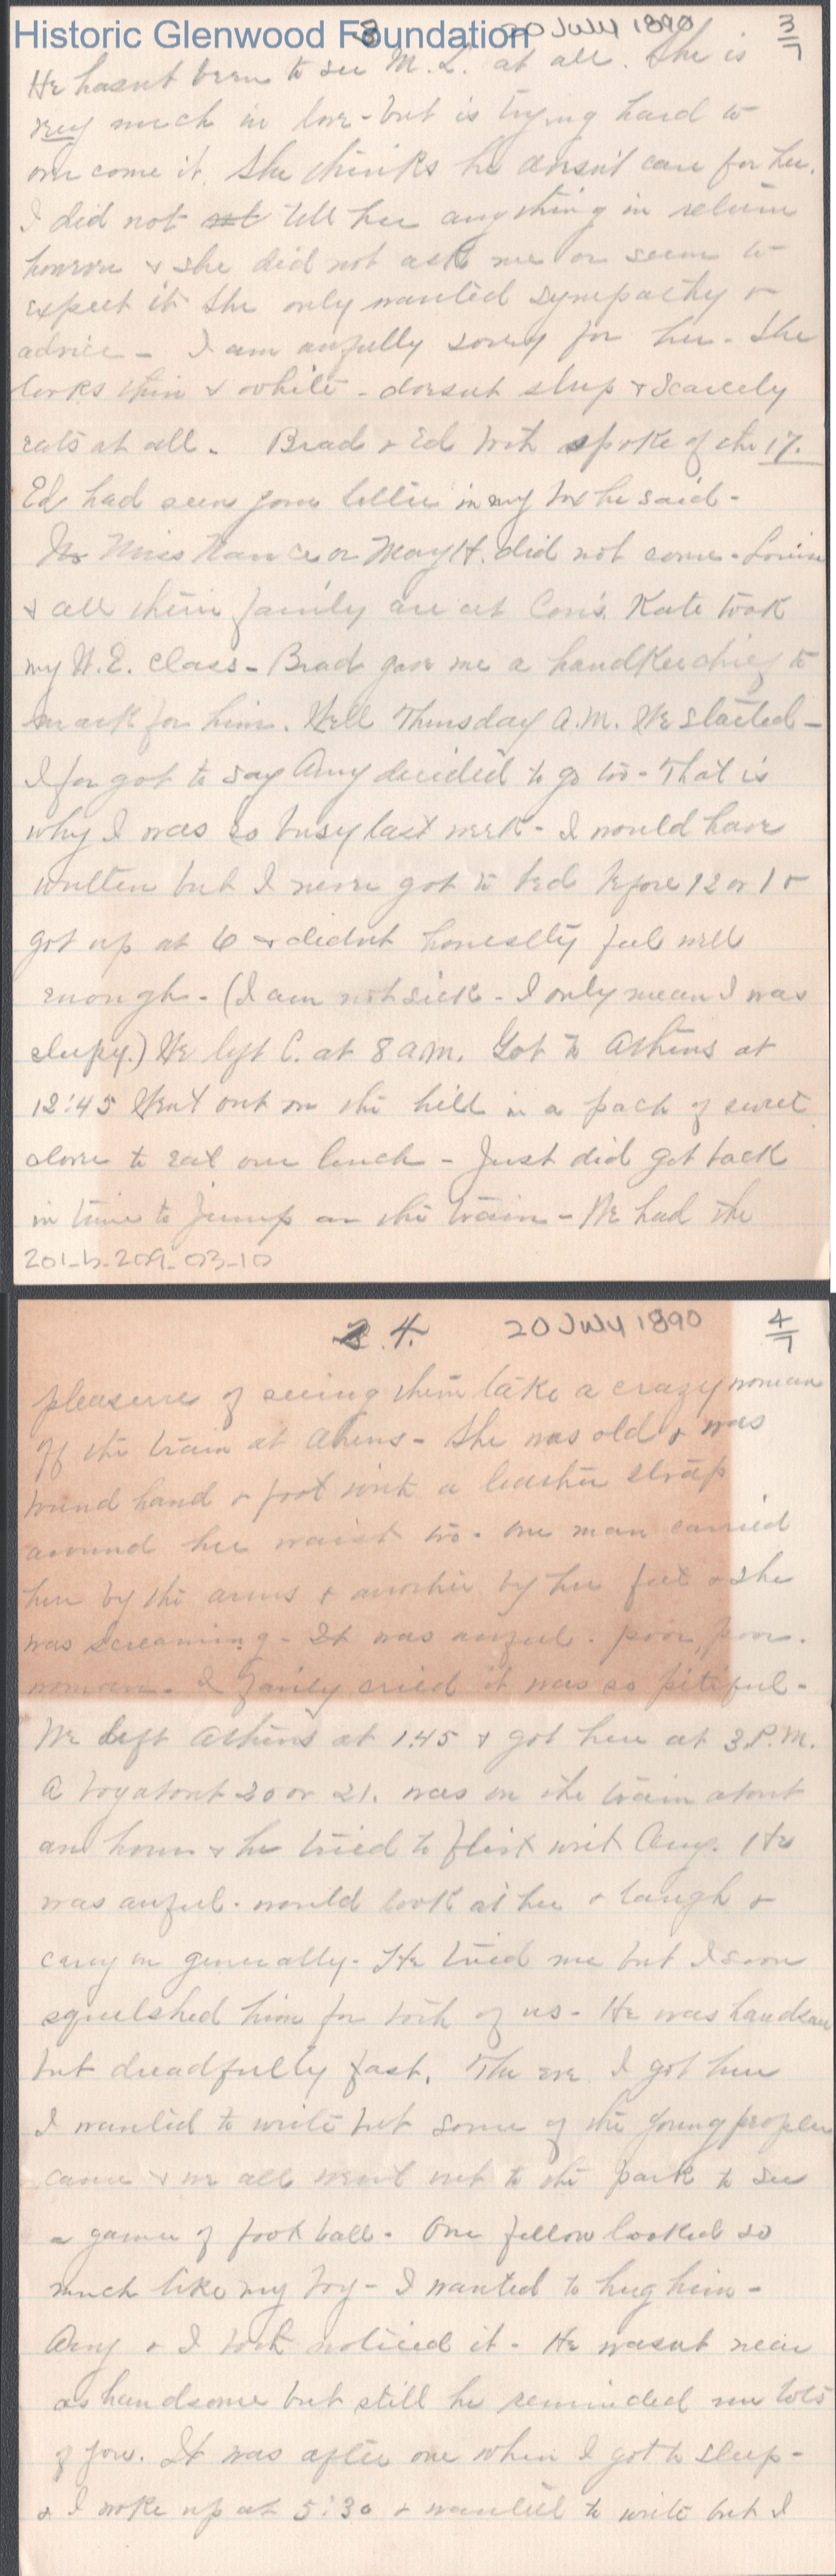 Historic Glenwood Foundation
3 20 July 1890 3/7
He hasnt been to see M. L. at all. She is
very much in love - but is trying hard to
over come it. She thinks he doesn't care for her.
I did not tell her anything in return
however & she did not ask me or seem to
expect it she only wanted sympathy &
advice - I am awfully sorry for her. She
looks thin & white - doesnt sleep & scarcely
eats at all. Brad & Ed both spoke of the 17.
Ed had seen your letter in my box he said -
Miss Nance or May H. did not come. Louise
& all their family are at Con's. Kate took
my W.E. class - Brad gave me a handkerchief to
mark for him. Well Thursday A.M. We started -
I forgot to say Amy decided to go too - That is
why I was so busy last week - I would have
written but I never got to bed before 12 or 1 &
got up at 6 & didnt honestly feel well
enough - (I am not sick - I only mean I was
sleepy.) We left C. at 8 a.m. Got to Athens at
12:45 Went out on the hill in a pach of sweet
clover to eat our lunch - Just did get back
in time to jump on the train - We had the
201-b-209-03-10
4. 20 July 1890 4/7
pleasure of seeing them take a crazy woman
off the train at Athens - She was old & was
bound hand & foot with a leather strap
around her waist too. One man carried
her by the arms & another by her feet & she
was screaming - It was awful. poor, poor.
woman. I fairly cried it was so pitiful -
We left Athens at 1.45 & got here at 3 P.M.
A boy about 20 or 21. was on the train about
an hour & he tried to flirt with Amy. He
was awful. would look at her & laugh &
carry on generally. He tried me but I soon
squelshed him for both of us - He was handsome
but dreadfully fast. The eve. I got here
I wanted to write but some of the young people
came & we all went out to the park to see
a game of foot ball. One fellow looked so
much like my boy - I wanted to hug him -
Amy & I both noticed it - He wasnt near
as handsome but still he reminded me lots
of you. It was after one when I got to sleep -
& I woke up at 5:30 & wanted to write but I